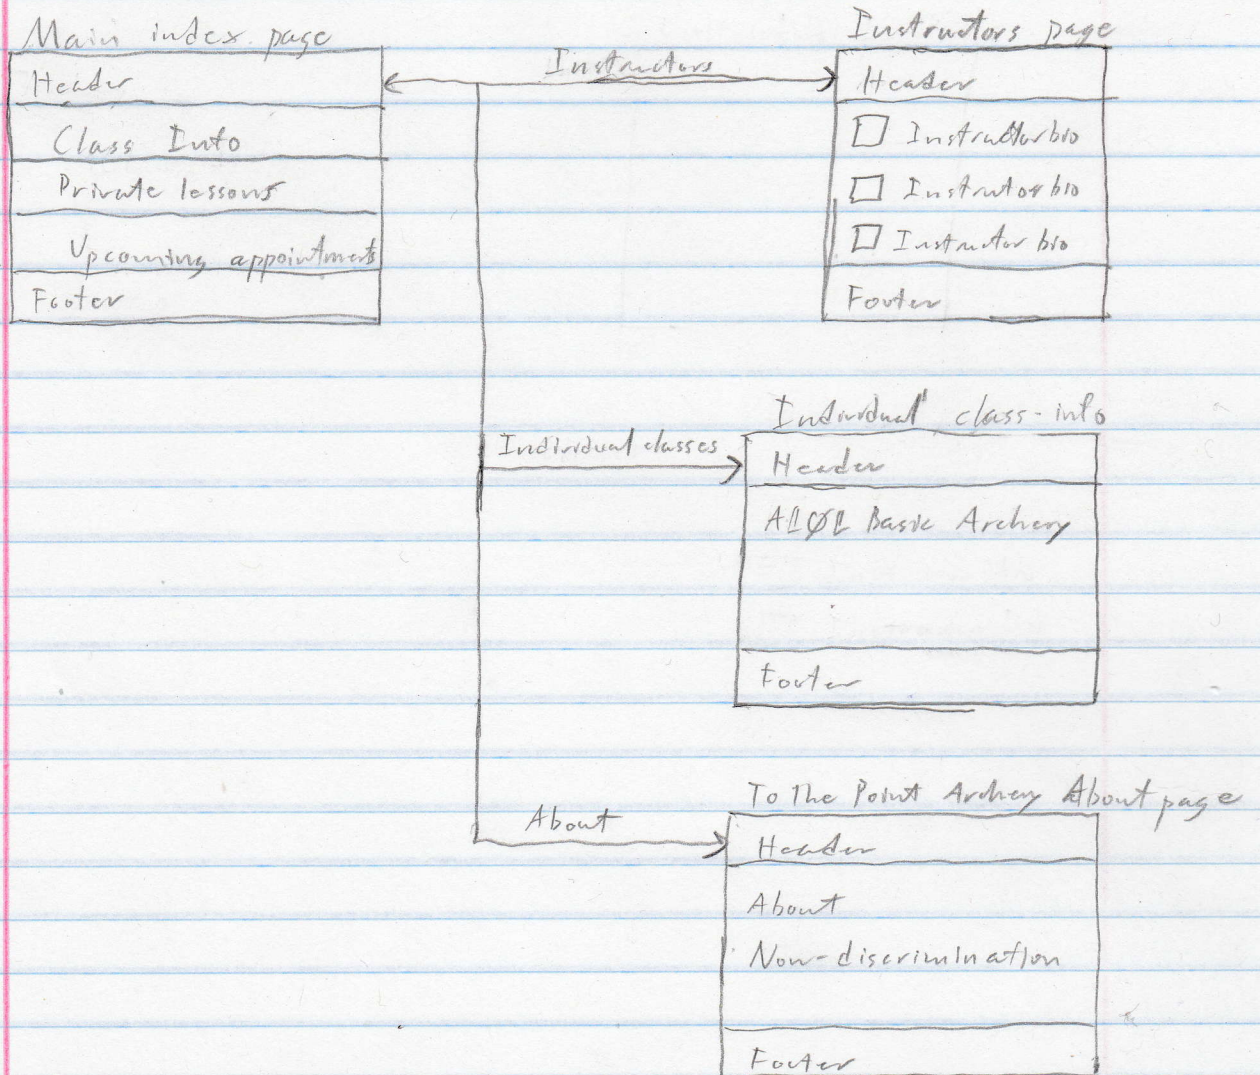 Main index page
Header
Class Info
Private lessons
Upcoming appointments
Footer
Instructors
Instructors page
Header
Instructor bio
Instructor bio
Instructor bio
Footer
Individual classes
Individual class-info
Header
A101 Basic Archery
Footer
About
To The Point Archery About page
Header
About
Non-discrimination
Footer